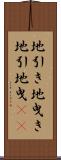 地引き地曳き
地引地曳